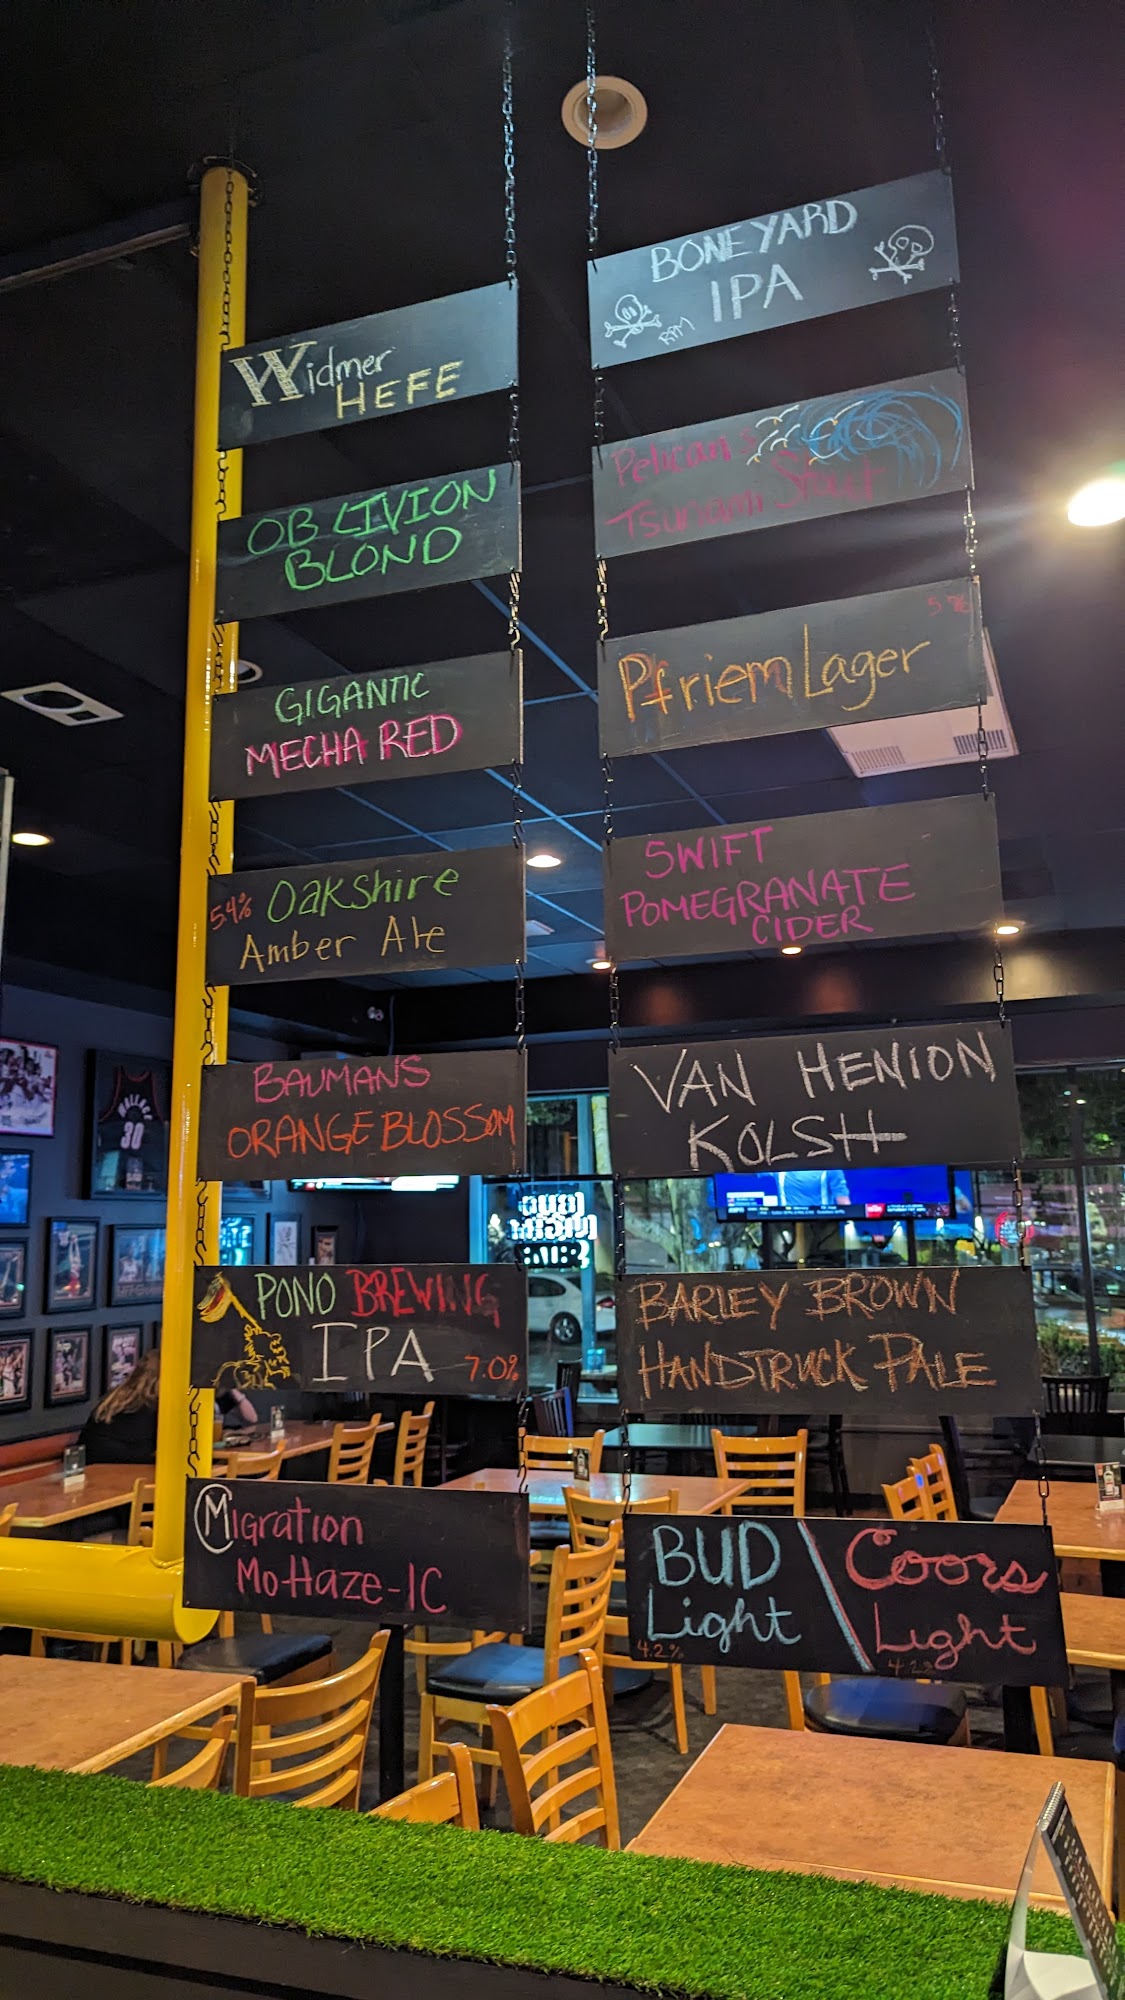 Widmer
HEFE
OBLIVION
BLOND
GIGANTIC
MECHA RED
5.4% Oakshire
Amber Ale
BAUMANS
ORANGE BLOSSOM
PONO BREWING
IPA 7.0%
Migration
MoHaze-IC
BONEYARD
IPA
RPM
Pelican's
Tsunami Stout
Pfriem Lager
SWIFT
POMEGRANATE
CIDER
VAN HENION
KOLSH
BARLEY BROWN
HANDTRUCK PALE
BUD
Light
4.2%
Coors
Light
WALLACE
30